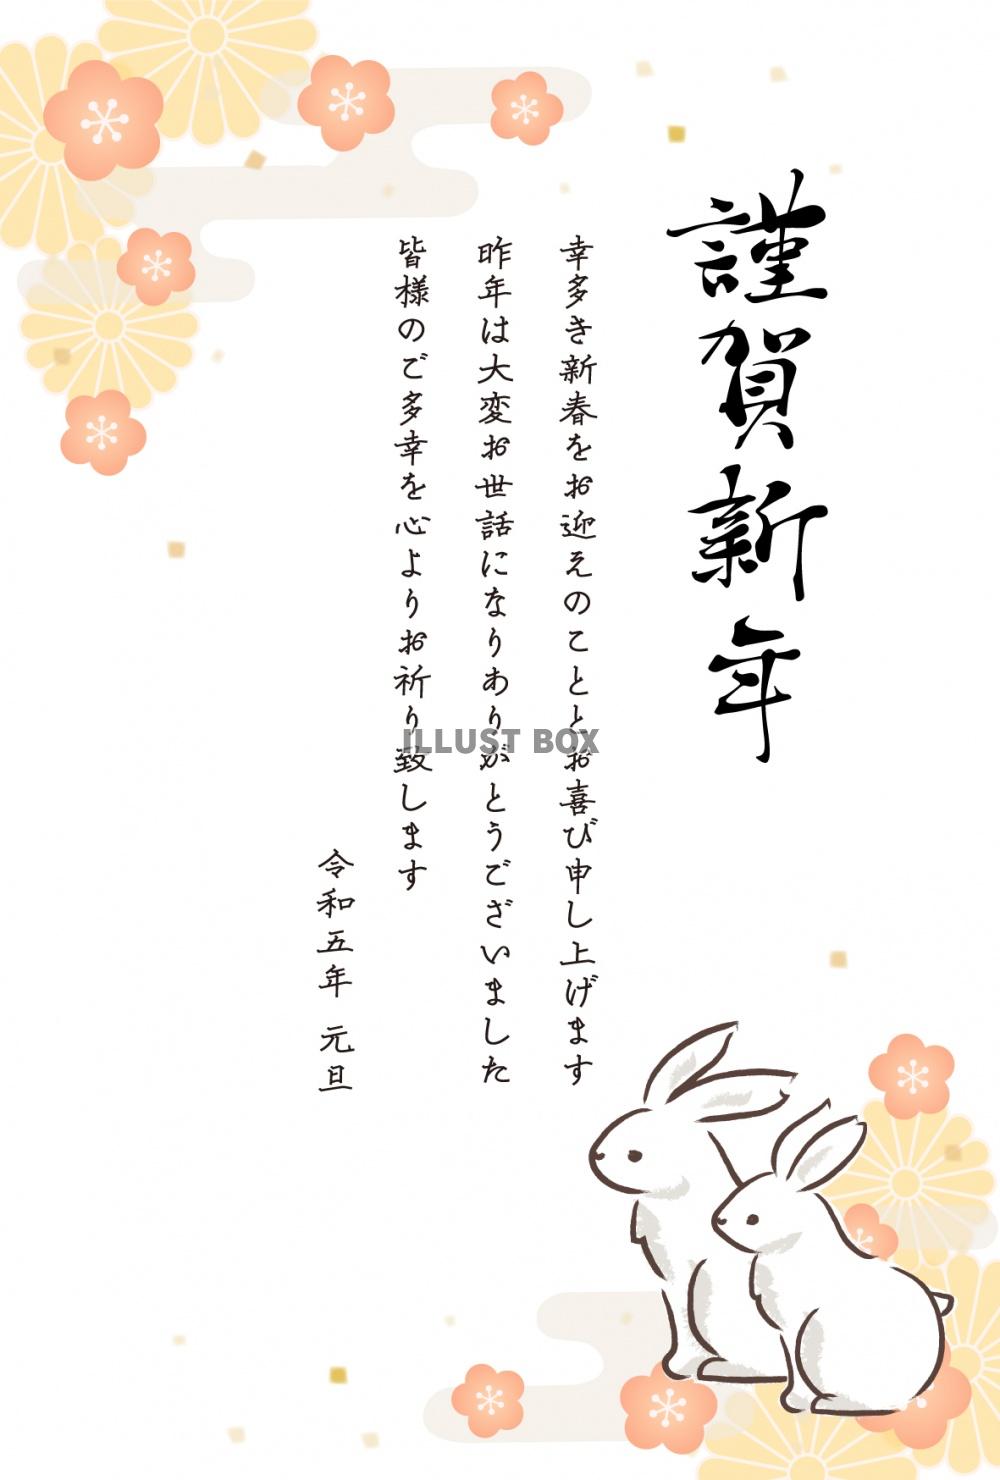 謹賀新年
幸多き新春をお迎えのこととお喜び申し上げます
昨年は大変お世話になりありがとうございました
皆様のご多幸を心よりお祈り致します
令和五年 元旦
ILLUST BOX